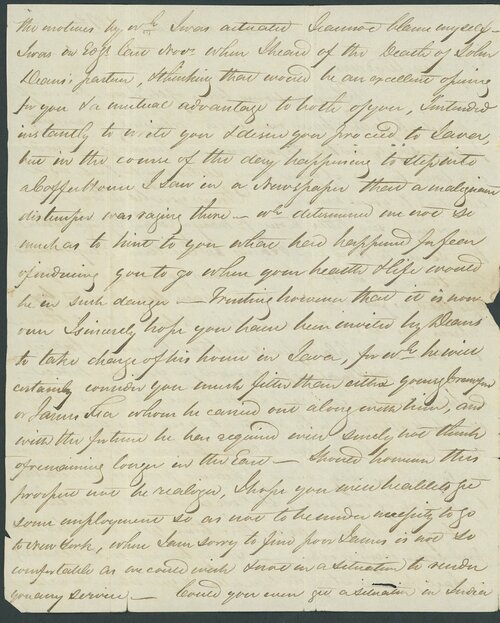 the motives by wch I was actuated I cannot blame myself –
I was in Edr last Novr when I heard of the Death of John
Deans's partner, & thinking that would be an excellent opening
for you & a mutual advantage to both of you, I intended
instantly to write you & desire you proceed to Java,
but in the course of the day happening to step into
a Coffee House I saw in a Newspaper that a malignant
distemper was raging there – wch determined me not so
much as to hint to you what had happened for fear
of inducing you to go where your health & life would
be in such danger – Trusting however that it is now
over I sincerely hope you have been invited by Deans
to take charge of his house in Java, for wch he will
certainly consider you much fitter than either young
or James whom he carried out along with him, and
with the fortune he has acquired will surely not think
of remaining longer in the East – Should however this
prospect not be realized, I hope you will be able to get
some employment so as not to be under necessity to go
to New York, where I am sorry to find poor James is not so
comfortable as we could wish & not in a situation to render
you any service – Could you even get a situation in India